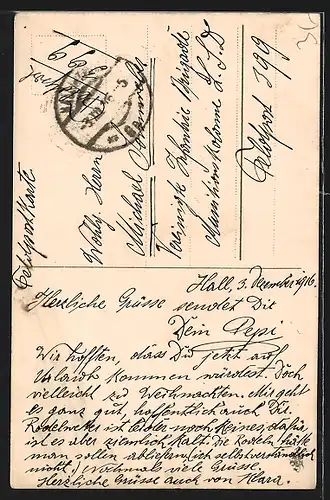 Feldpostkarte
Wohlg. Herrn
Michael
Vereinigte Infanterie Brigade
Munitionskolonne L. S. D
Feldpost 399
Hall, 3. Dezember 1916.
Herzliche Grüsse sendet Dir
Dein Pepi
Wir hofften, dass Du jetzt auf
Urlaub kommen würdest. Doch
vielleicht zu Weihnachten. Mir geht
es ganz gut, hoffentlich auch Dir.
Rodelwetter ist leider noch keines, dafür
ist es aber ziemlich kalt. Die Rodeln hätte
man sollen abliefern, (ich selbstverständlich
nicht.) Nochmals viele Grüsse.
Herzliche Grüsse auch von Klara.